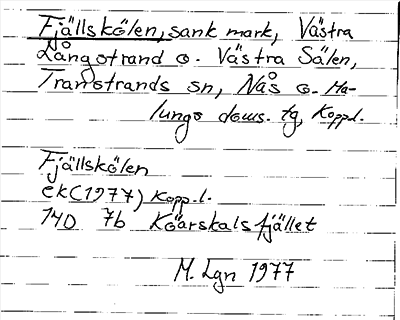 Fjällskölen, sank mark, Västra
Långstrand o. Västra Sälen,
Transtrands sn, Nås o. Ma-
lungs doms. tg, Koppl.
Fjällskölen
ek (1977) Kopp.l.
14D 7b Köarskalsfjället
M. Lgn 1977